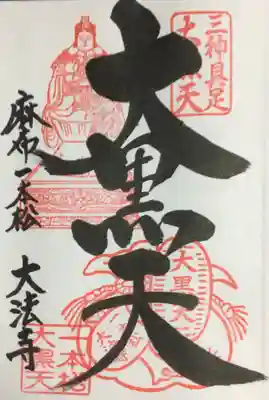 三神具足
大黒天
大黒天
麻布一本松
大法寺
大黒天
一本松
大黒天